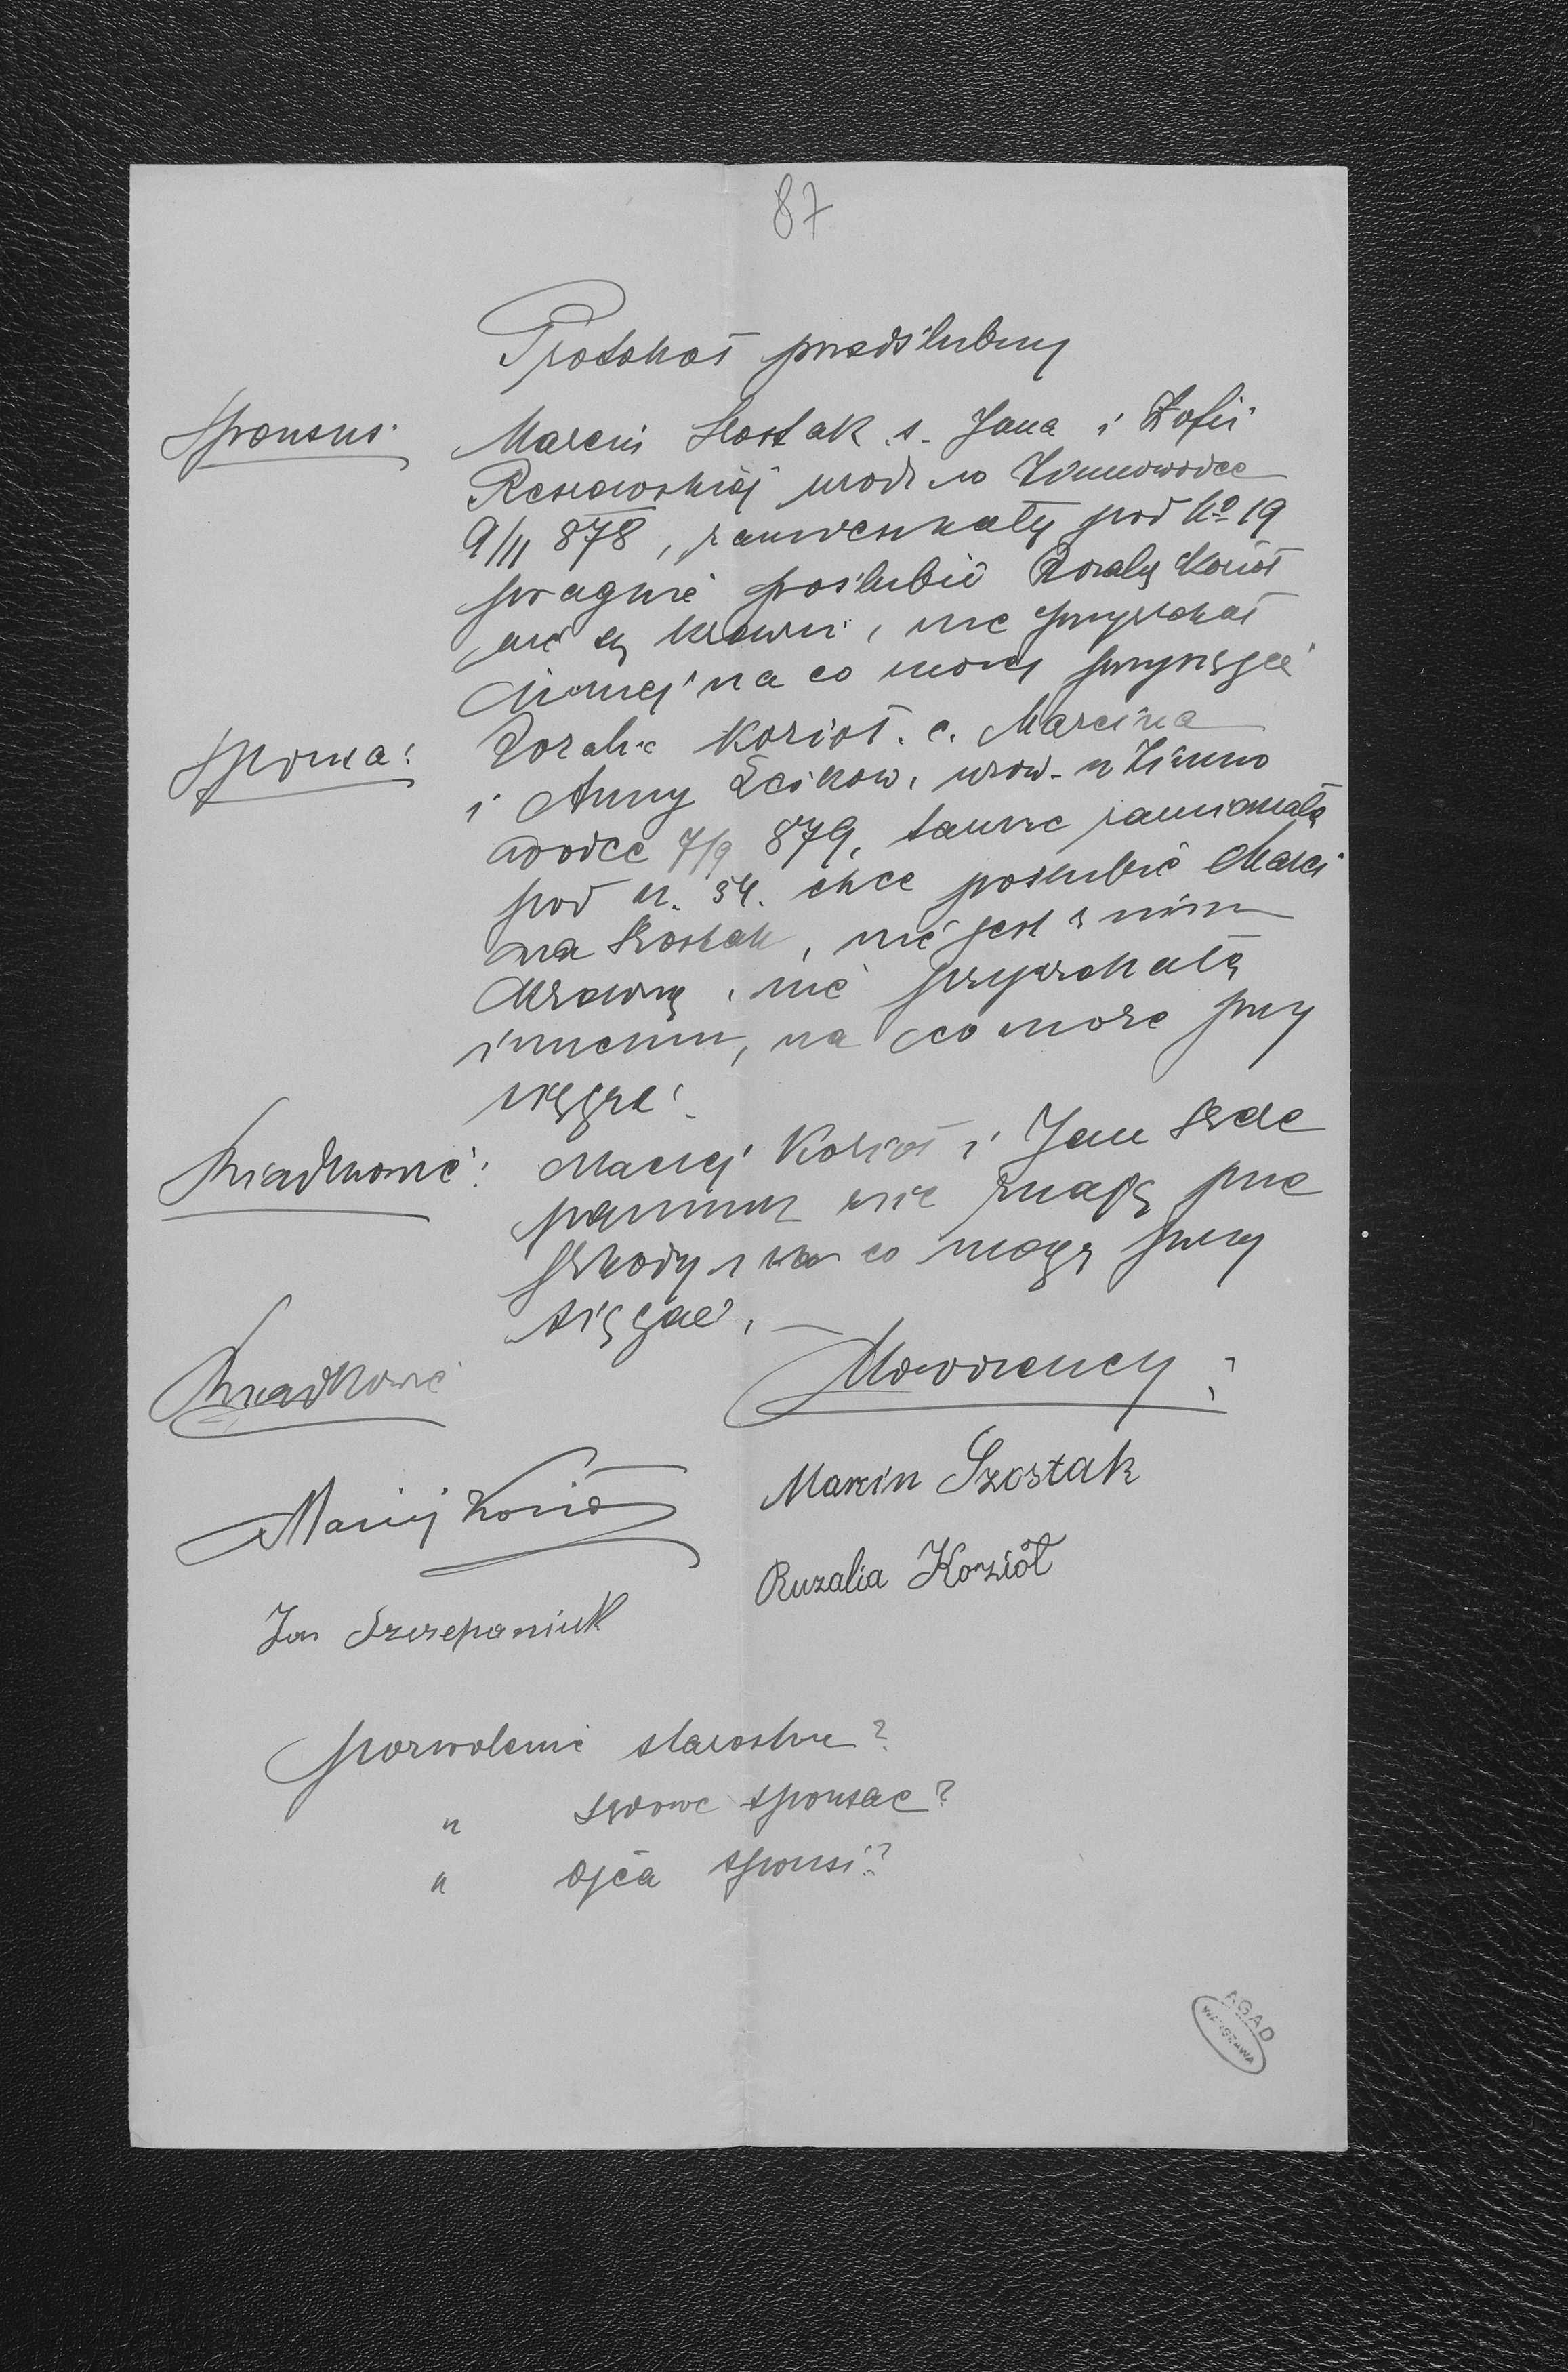 87
Protokoł przedślubny
Sponsus: Marcin Szostak s. Jana i Zofii
urodz. w Zimnowodce
9/11 878, zamieszkały pod No 19
pragnie poślubić Rozalię Kozioł
nie są krewni, nie przyrzekał
innej na co może przysięgać
Sponsa: Rozalia Kozioł. c. Marcina
i Anny urodz. w Zimno
wodce 7/9 879, tamże zamieszkała
pod n. 54. chce poślubić Marci
na Szostak, nie jest z nim
krewną, nie przyrzekała
innemu, na co może przy
sięgać.
Świadkowie: Maciej Kozioł i Jan Szcze
paniuk nie znają prze
szkody i na co mogą przy
sięgać.
Świadkowie Nowożeńcy:
Maciej Kozioł Marcin Szostak
Ruzalia Korziół
Jan Szczepaniuk
pozwolenie starostwa?
" sądowe sponsae?
" ojca sponsi?
AGAD
WARSZAWA